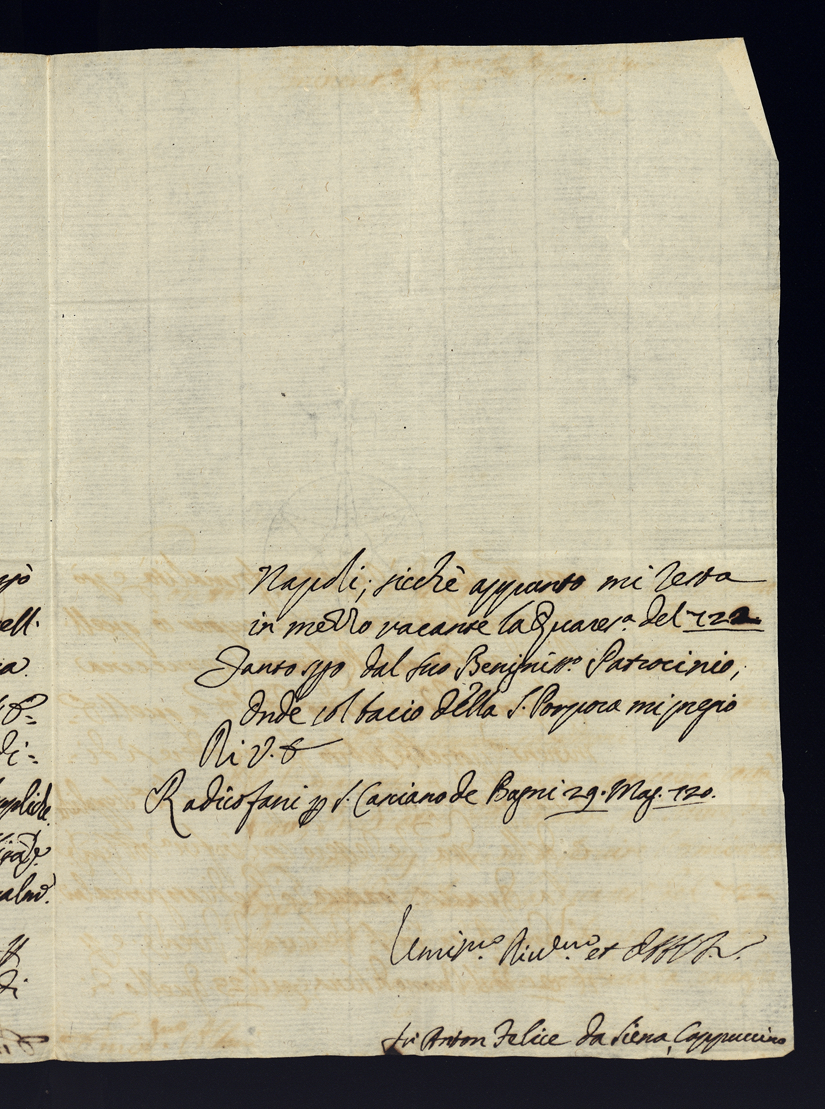 Napoli; sicchè appunto mi resta
in mezzo vacante la Quares.ª del 722
Tanto spo dal suo Benigniss.º Patrocinio,
onde col bacio della S. Porpora mi pregio
Di V. E
Radicofani p S. Casciano de Bagni 29. Mag. 720.
Umiss.º Div.mo et Obb.
fr Anton Felice da Siena Cappuccino